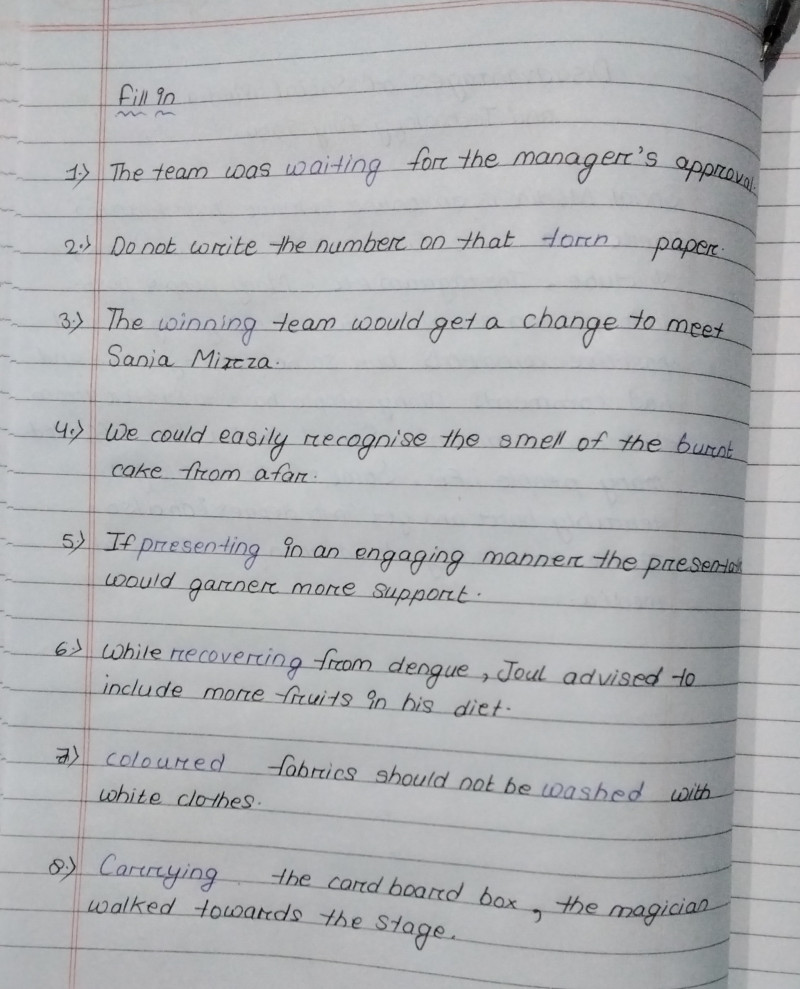 Fill in
1.) The team was waiting for the manager's approval.
2.) Do not write the number on that torn paper.
3.) The winning team would get a change to meet
Sania Mirza.
4.) We could easily recognise the smell of the burnt
cake from afar.
5.) If presenting in an engaging manner the presentat
would garner more support.
6.) While recovering from dengue, Joul advised to
include more fruits in his diet.
7.) coloured fabrics should not be washed with
white clothes.
8.) Carrying the cardboard box, the magician
walked towards the stage.